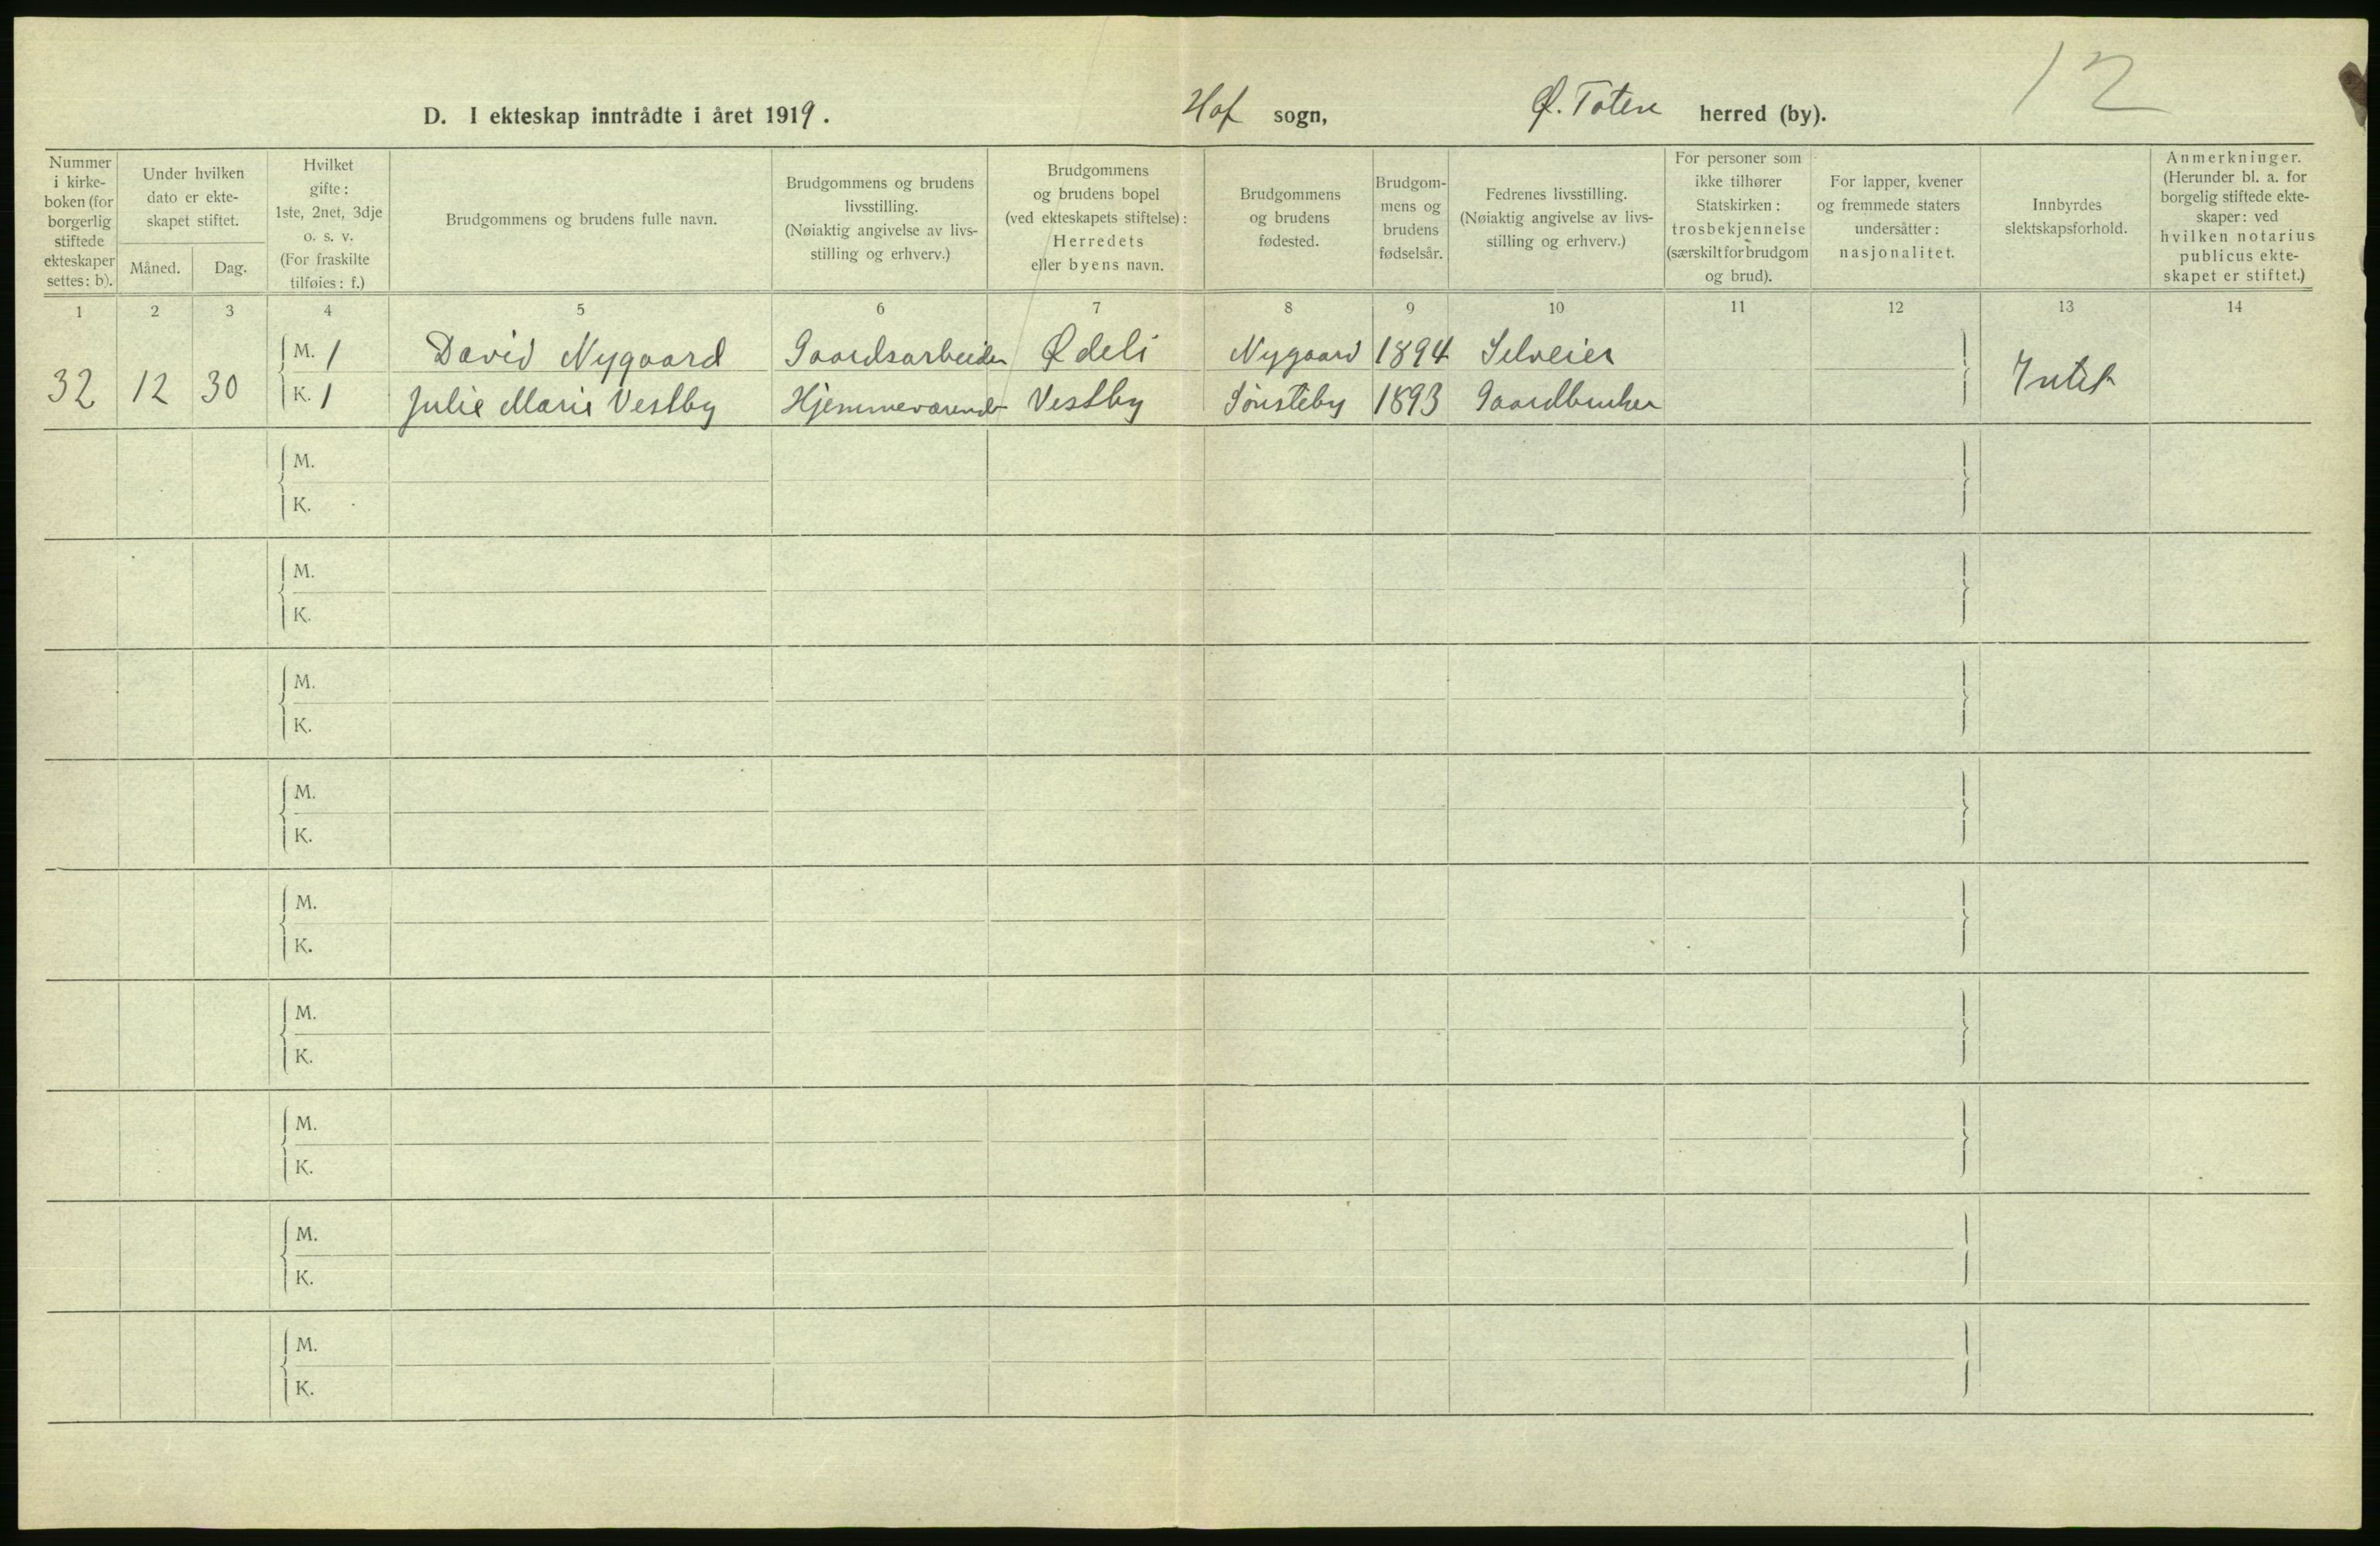 12
D. I ekteskap inntrådte i året 1919. Hof sogn, Ø. Toten herred (by).
Nummer i kirke-boken (for borgerlig stiftede ekteskaper settes: b).
Under hvilken dato er ekte-skapet stiftet.
Måned. Dag.
Hvilket gifte: 1ste, 2net, 3dje o. s. v. (For fraskilte tilføies: f.)
Brudgommens og brudens fulle navn.
Brudgommens og brudens livsstilling. (Nøiaktig angivelse av livs-stilling og erhverv.)
Brudgommens og brudens bopel (ved ekteskapets stiftelse): Herredets eller byens navn.
Brudgommens og brudens fødested.
Brudgom-mens og brudens fødselsår.
Fedrenes livsstilling. (Nøiaktig angivelse av livs-stilling og erhverv.)
For personer som ikke tilhører Statskirken: trosbekjennelse (særskilt for brudgom og brud).
For lapper, kvener og fremmede staters undersåtter: nasjonalitet.
Innbyrdes slektskapsforhold.
Anmerkninger. (Herunder bl. a. for borgelig stiftede ekte-skaper: ved hvilken notarius publicus ekte-skapet er stiftet.)
1 2 3 4 5 6 7 8 9 10 11 12 13 14
M. 1 David Nygaard Gaardsarbeider Ødeli Nygaard 1894 Selveier
32 12 30 Intet
K. 1 Julie Marie Vestby Hjemmeværende Vestby Sønsteby 1893 Gaardbruker
M.
K.
M.
K.
M.
K.
M.
K.
M.
K.
M.
K.
M.
K.
M.
K.
M.
K.